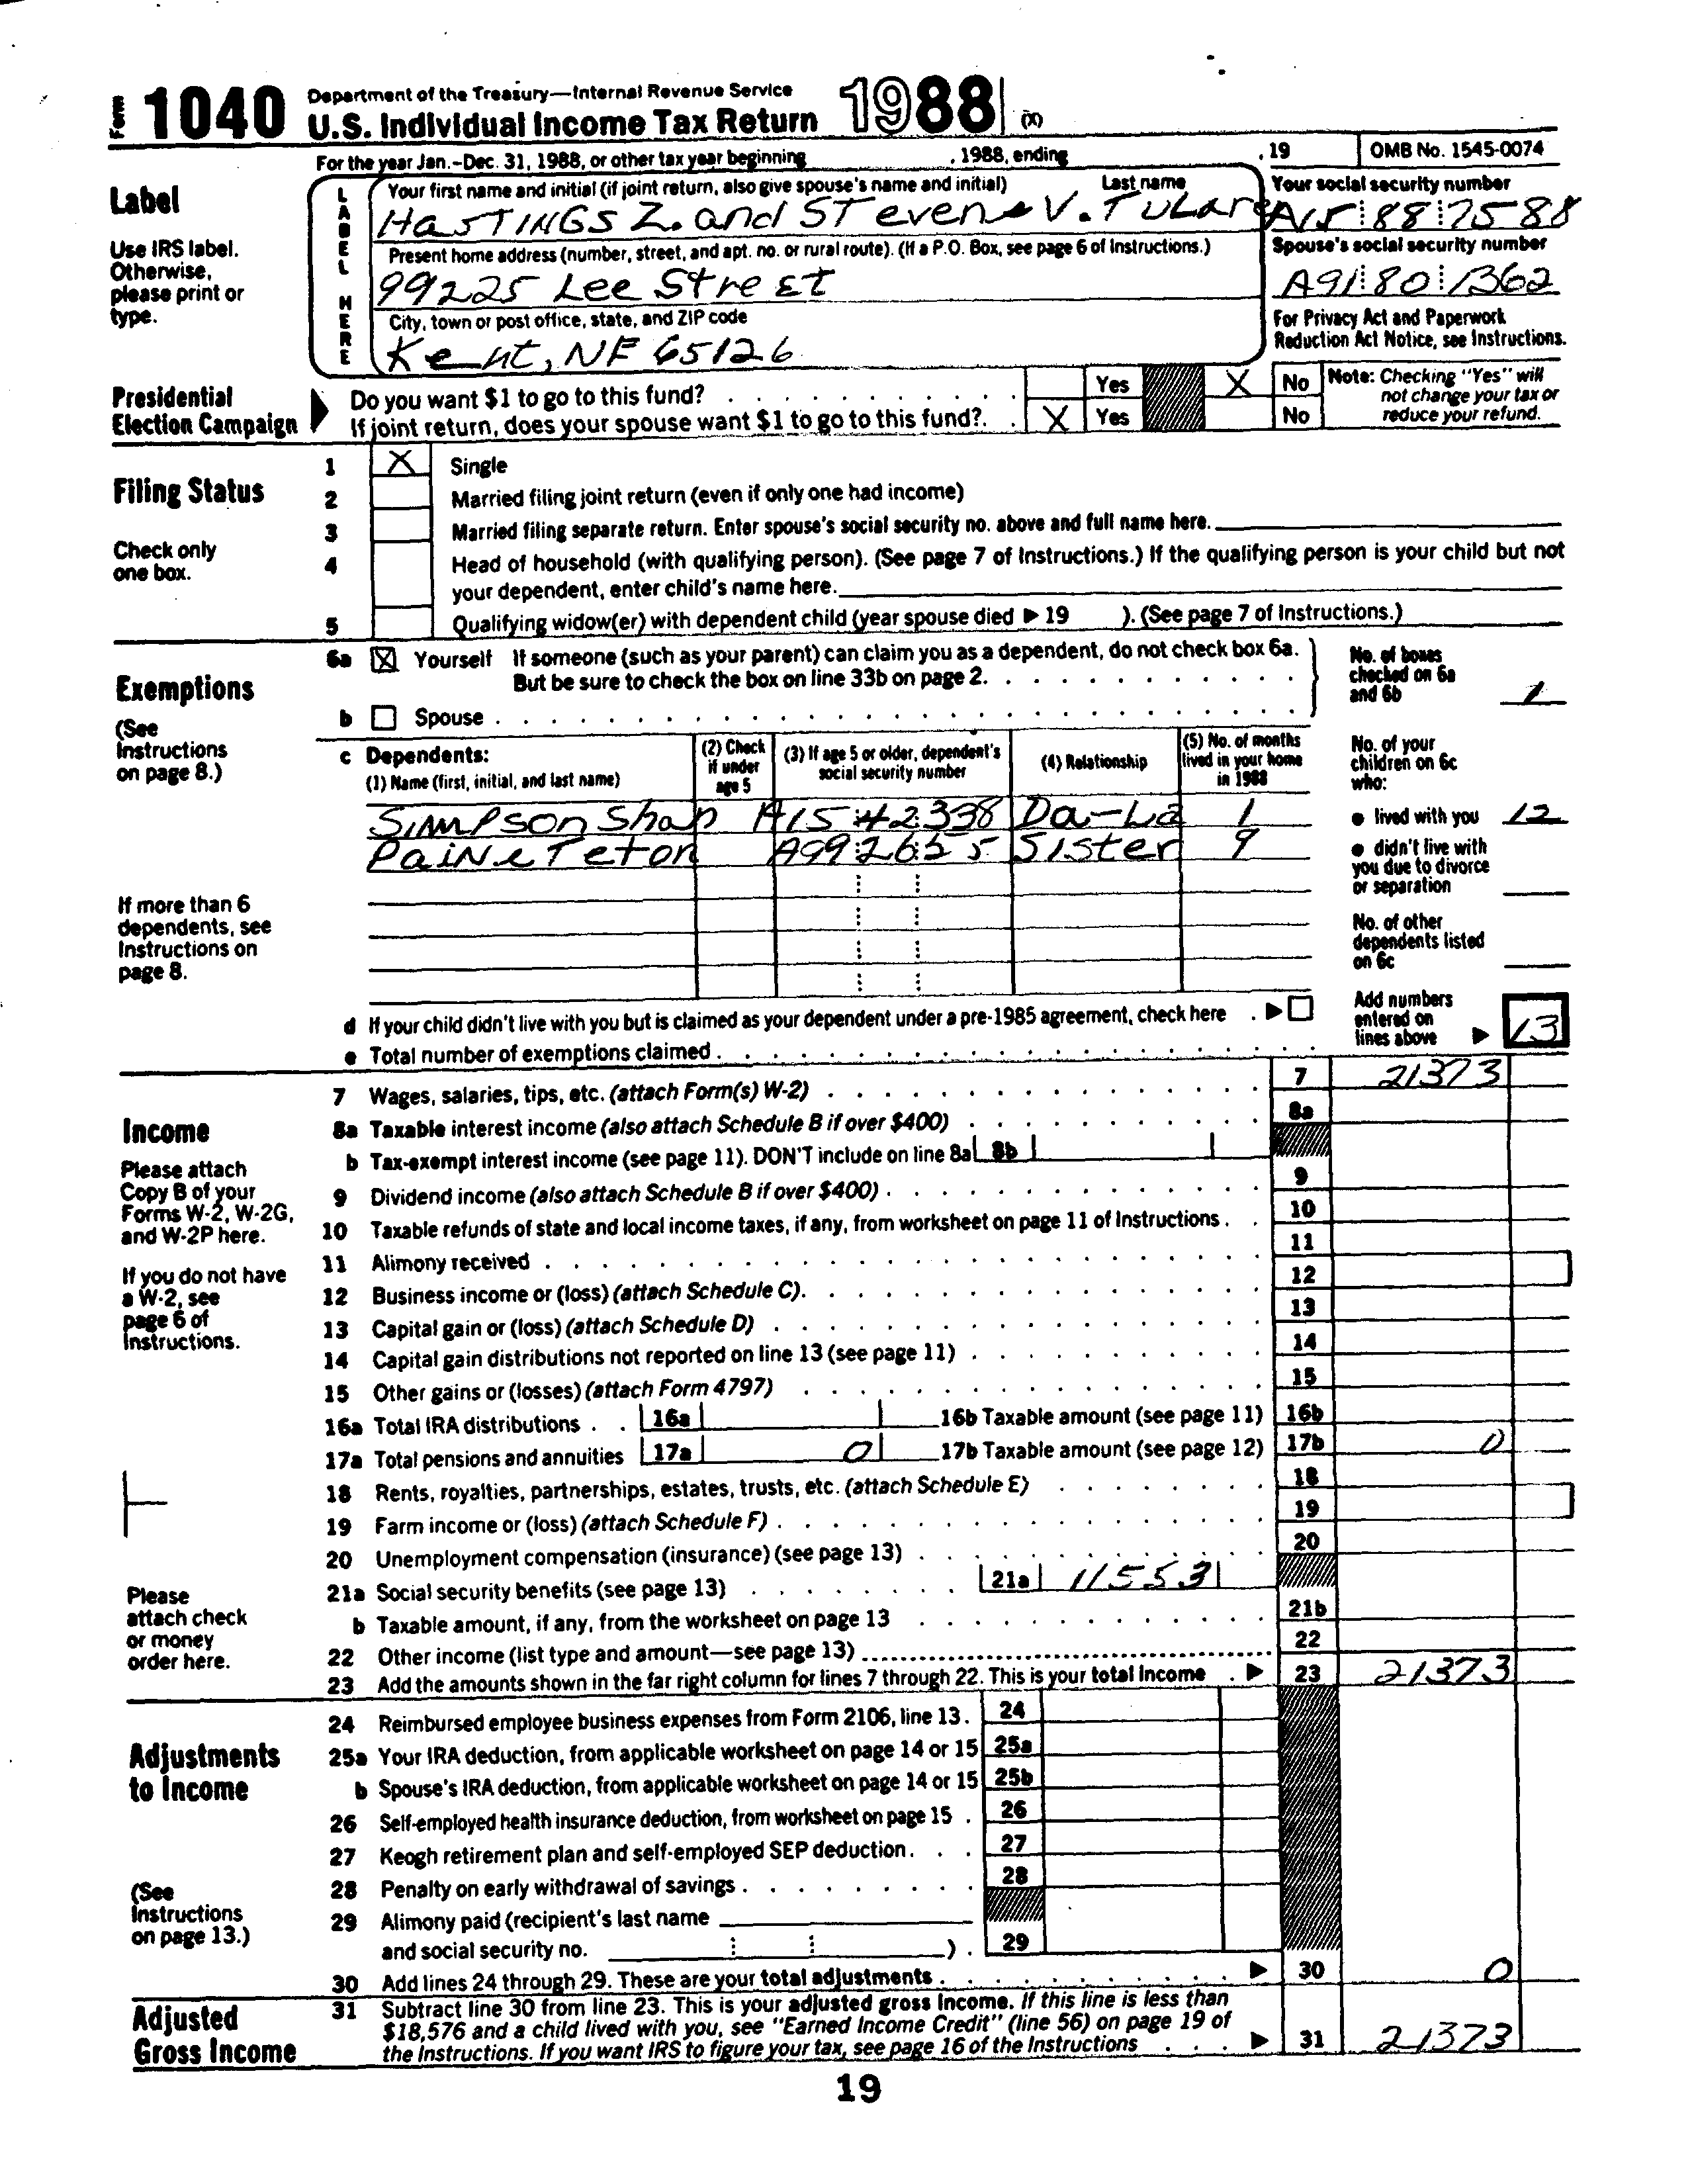 Form 1040 Department of the Treasury—Internal Revenue Service
U.S. Individual Income Tax Return 1988 (X)
For the year Jan.-Dec. 31, 1988, or other tax year beginning , 1988, ending , 19 OMB No. 1545-0074
Label
Use IRS label.
Otherwise,
please print or
type.
LABEL HERE
Your first name and initial (if joint return, also give spouse's name and initial) Last name
HASTINGS Z. and STeven V. TULare
Your social security number
A15 88 7588
Present home address (number, street, and apt. no. or rural route). (If a P.O. Box, see page 6 of Instructions.)
99225 Lee StreEt
Spouse's social security number
A91 80 1362
City, town or post office, state, and ZIP code
Kent, NE 65126
For Privacy Act and Paperwork
Reduction Act Notice, see Instructions.
Presidential
Election Campaign
Do you want $1 to go to this fund? Yes X No
If joint return, does your spouse want $1 to go to this fund? X Yes No
Note: Checking "Yes" will
not change your tax or
reduce your refund.
Filing Status
Check only
one box.
1 X Single
2 Married filing joint return (even if only one had income)
3 Married filing separate return. Enter spouse's social security no. above and full name here.
4 Head of household (with qualifying person). (See page 7 of Instructions.) If the qualifying person is your child but not
your dependent, enter child's name here.
5 Qualifying widow(er) with dependent child (year spouse died ▶ 19 ). (See page 7 of Instructions.)
Exemptions
(See
Instructions
on page 8.)
6a X Yourself If someone (such as your parent) can claim you as a dependent, do not check box 6a.
But be sure to check the box on line 33b on page 2.
b Spouse
No. of boxes
checked on 6a
and 6b 1
c Dependents:
(1) Name (first, initial, and last name)
(2) Check
if under
age 5
(3) If age 5 or older, dependent's
social security number
(4) Relationship
(5) No. of months
lived in your home
in 1988
SIMPSON Shap A15 42338 Da-La 1
PaiNe Teton A99 2655 Sister 9
No. of your
children on 6c
who:
● lived with you 12
● didn't live with
you due to divorce
or separation
No. of other
dependents listed
on 6c
If more than 6
dependents, see
Instructions on
page 8.
d If your child didn't live with you but is claimed as your dependent under a pre-1985 agreement, check here ▶
e Total number of exemptions claimed
Add numbers
entered on
lines above ▶ 13
Income
Please attach
Copy B of your
Forms W-2, W-2G,
and W-2P here.
If you do not have
a W-2, see
page 6 of
Instructions.
Please
attach check
or money
order here.
7 Wages, salaries, tips, etc. (attach Form(s) W-2) 7 21373
8a Taxable interest income (also attach Schedule B if over $400) 8a
b Tax-exempt interest income (see page 11). DON'T include on line 8a 8b
9 Dividend income (also attach Schedule B if over $400) 9
10 Taxable refunds of state and local income taxes, if any, from worksheet on page 11 of Instructions 10
11 Alimony received 11
12 Business income or (loss) (attach Schedule C) 12
13 Capital gain or (loss) (attach Schedule D) 13
14 Capital gain distributions not reported on line 13 (see page 11) 14
15 Other gains or (losses) (attach Form 4797) 15
16a Total IRA distributions 16a 16b Taxable amount (see page 11) 16b
17a Total pensions and annuities 17a 0 17b Taxable amount (see page 12) 17b 0
18 Rents, royalties, partnerships, estates, trusts, etc. (attach Schedule E) 18
19 Farm income or (loss) (attach Schedule F) 19
20 Unemployment compensation (insurance) (see page 13) 20
21a Social security benefits (see page 13) 21a 11553
b Taxable amount, if any, from the worksheet on page 13 21b
22 Other income (list type and amount—see page 13) 22
23 Add the amounts shown in the far right column for lines 7 through 22. This is your total income ▶ 23 21373
Adjustments
to Income
(See
Instructions
on page 13.)
24 Reimbursed employee business expenses from Form 2106, line 13 24
25a Your IRA deduction, from applicable worksheet on page 14 or 15 25a
b Spouse's IRA deduction, from applicable worksheet on page 14 or 15 25b
26 Self-employed health insurance deduction, from worksheet on page 15 26
27 Keogh retirement plan and self-employed SEP deduction 27
28 Penalty on early withdrawal of savings 28
29 Alimony paid (recipient's last name
and social security no. ) 29
30 Add lines 24 through 29. These are your total adjustments ▶ 30 0
Adjusted
Gross Income
31 Subtract line 30 from line 23. This is your adjusted gross income. If this line is less than
$18,576 and a child lived with you, see "Earned Income Credit" (line 56) on page 19 of
the Instructions. If you want IRS to figure your tax, see page 16 of the Instructions ▶ 31 21373
19